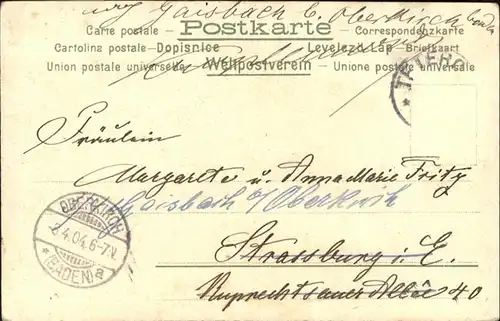 Gaisbach b. Oberkirch
Postkarte
Carte postale - Correspondenzkarte
Cartolina postale - Dopisnice Levelező-Lap - Briefkaart
Union postale universelle Weltpostverein - Unione postale universale
Fräulein
Margarete u. AnnaMarie Fritz
Gaisbach b/Oberkirch
Strassburg i. E.
Ruprechtsauer Allée 40
OBERKIRCH
8.4.04. 6-7.V.
(BADEN) a